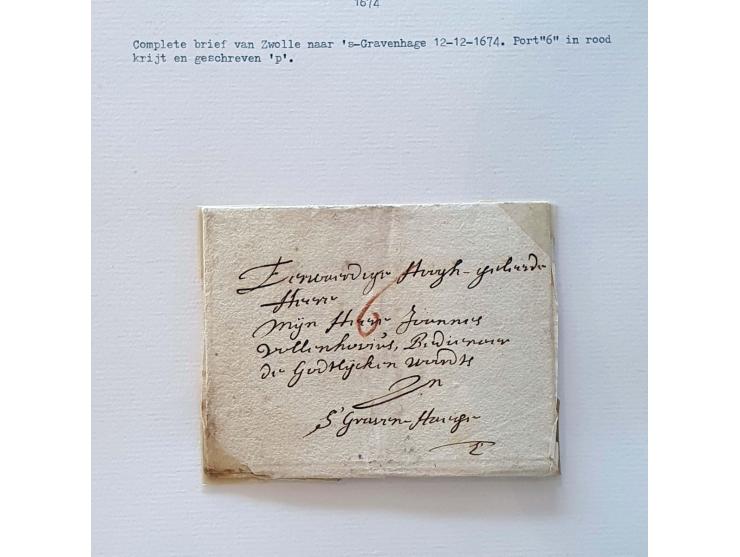 1674
Complete brief van Zwolle naar 's-Gravenhage 12-12-1674. Port"6" in rood
krijt en geschreven 'p'.
Eerwaerdige Hoogh-geleerde
Heere
6
Mijn Heere Joannes
Vollenhovius, Bedienaer
des Godtlijcken Woordts
In
S'Graven-Haege